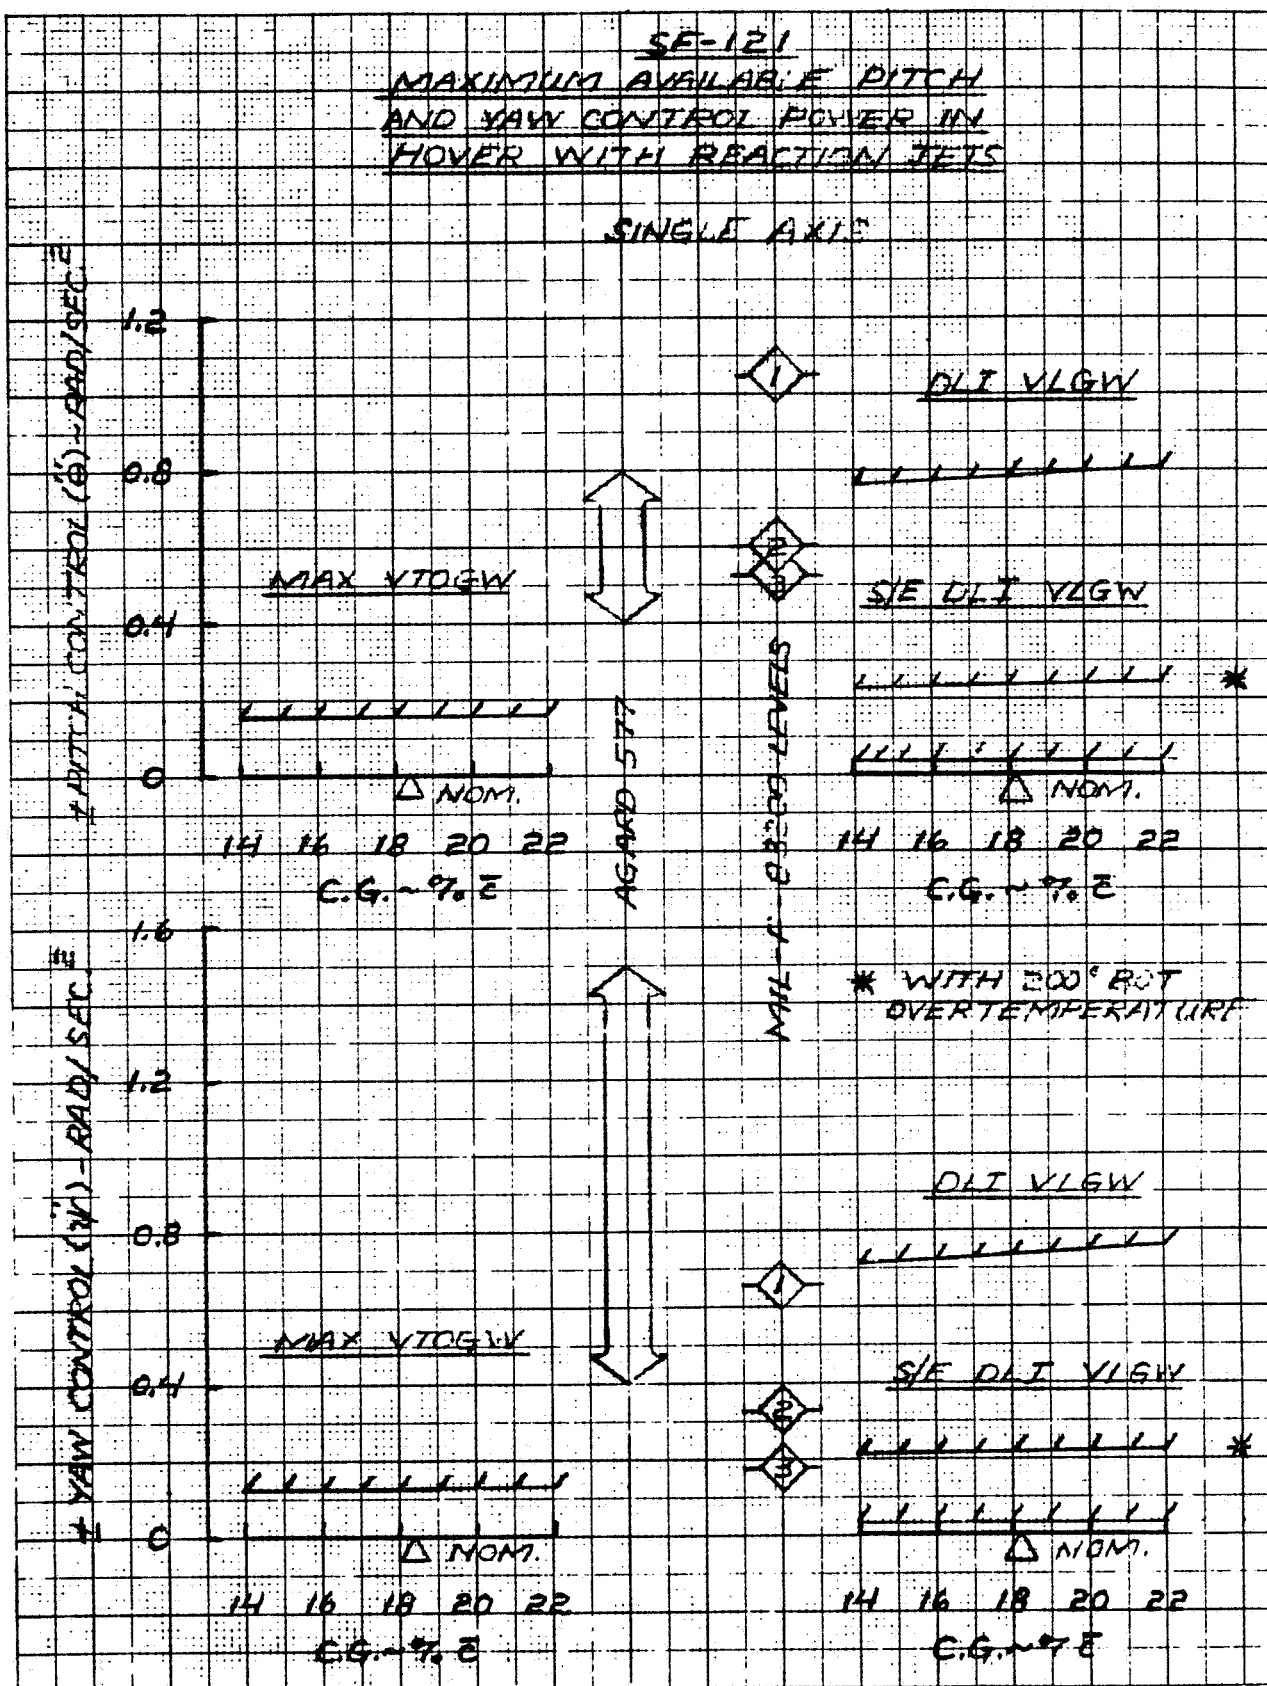 SF-121
MAXIMUM AVAILABLE PITCH
AND YAW CONTROL POWER IN
HOVER WITH REACTION JETS
SINGLE AXIS
± PITCH CONTROL (θ̈) ~ RAD/SEC.²
1.2
0.8
0.4
0
MAX VTOGW
△ NOM.
14 16 18 20 22
C.G. ~ % c̄
AGARD 577
1
2
3
MIL-F-83300 LEVELS
DLI VLGW
S/E DLI VLGW
*
△ NOM.
14 16 18 20 22
C.G. ~ % c̄
* WITH 200° BOT
OVERTEMPERATURE
± YAW CONTROL (ψ̈) - RAD/SEC.²
1.6
1.2
0.8
0.4
0
MAX VTOGW
△ NOM.
14 16 18 20 22
C.G. ~ % c̄
1
2
3
DLI VLGW
S/E DLI VLGW
*
△ NOM.
14 16 18 20 22
C.G. ~ % c̄